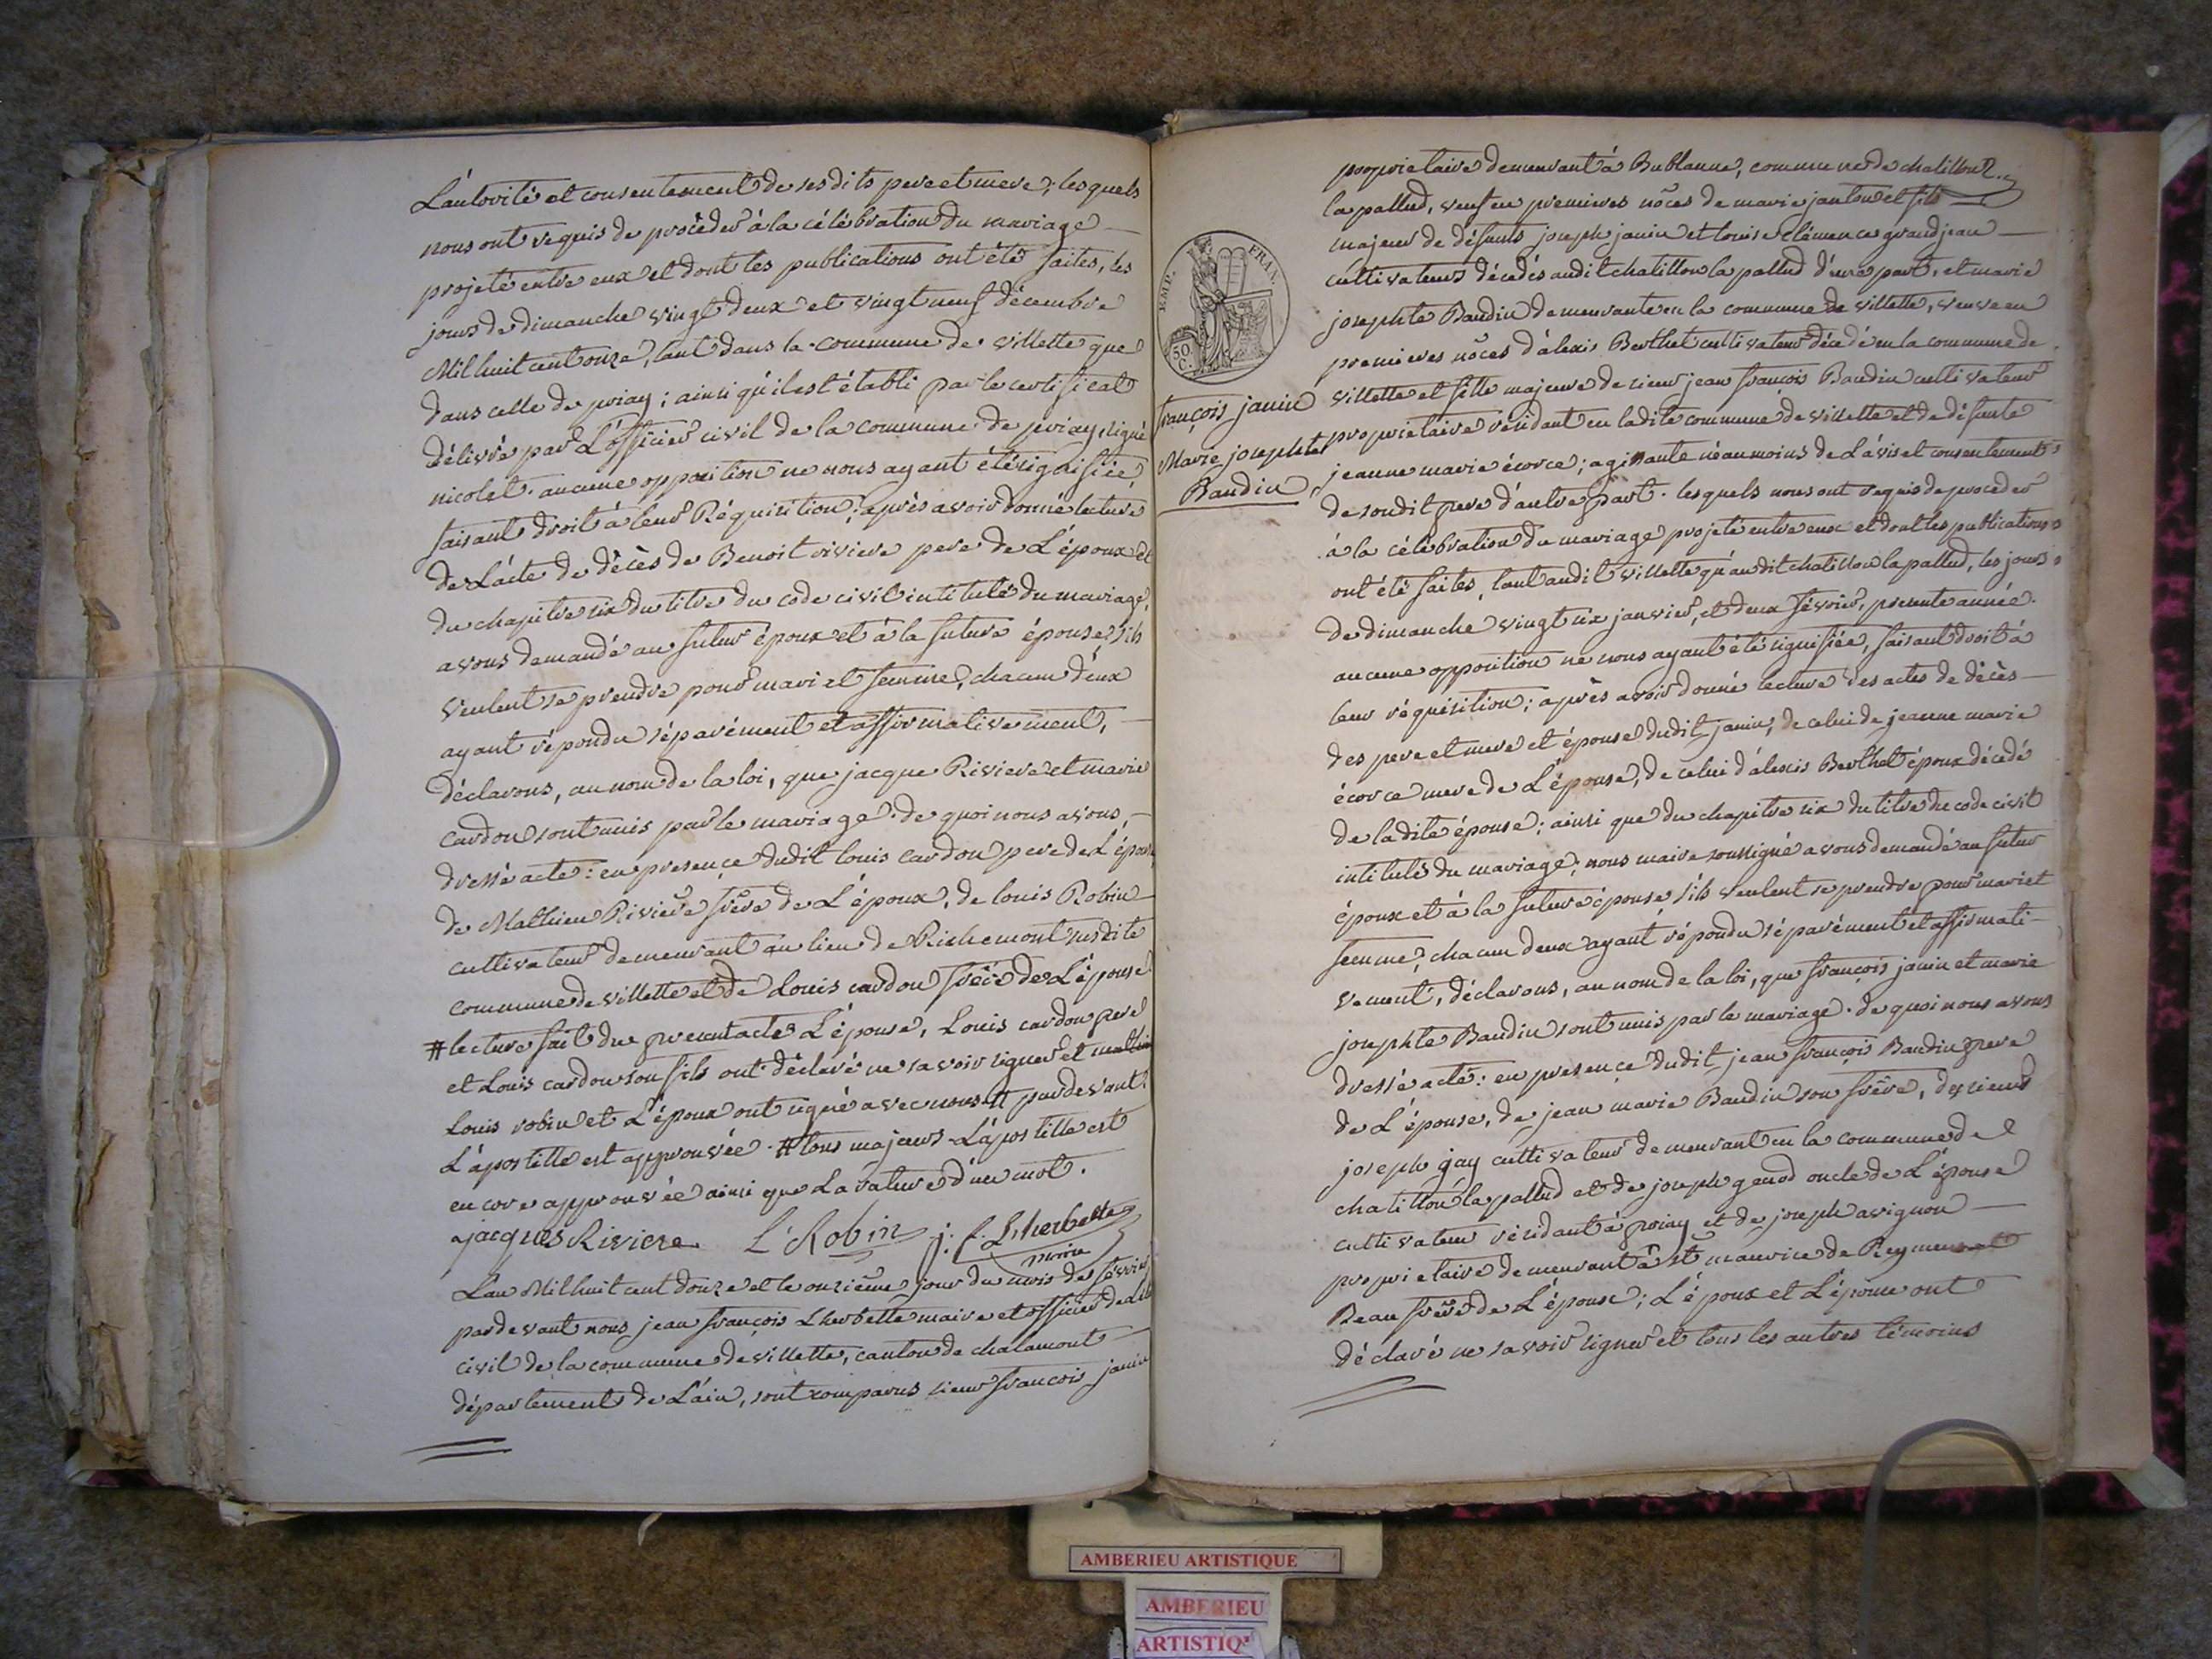 L'autorité et consentement de ses dits pere et mere; lesquels
nous ont requis de procéder à la célébration du mariage
projeté entre eux et dont les publications ont été faites, les
jours de dimanche vingt deux et vingt neuf décembre
Mil huit cent onze, tant dans la commune de villette que
dans celle de priay; ainsi qu'il est établi par le certificat
délivré par L'officier civil de la commune de priay, signé
nicolet. aucune opposition ne nous ayant été signifiée,
faisant droit à leur Réquisition; après avoir donné lecture
de L'acte de décès de Benoit riviere pere de L'époux et
du chapitre six du titre du code civil intitulé du mariage,
avons demandé au futur époux et à la future épouse s'ils
veulent se prendre pour mari et femme, chacun d'eux
ayant répondu séparément et affirmativement,
déclarons, au nom de la loi, que jacque Riviere et marie
cardon sont unis par le mariage. de quoi nous avons,
dressé acte: en presence dudit louis cardon pere de L'épouse,
de Mathieu Riviere frère de L'époux, de louis Robin
cultivateur demeurant au lieu de Richemont susdite
commune de villette et de Louis cardon frère de L'épouse
# lecture fait du present acte L'épouse, Louis cardon pere
et Louis cardon son fils ont déclaré ne savoir signer et mathieu
Louis robin et L'époux ont signé avec nous # pardevant
L'apostille est approuvée. # tous majeurs L'apostille est
encore approuvée ainsi que La rature d'un mot.
jacques Riviere L Robin j. f. Lherbette
maire
L'an Mil huit cent douze et le onzième jour du mois de février
pardevant nous jean françois Lherbette maire et officier de L'ét
civil de la commune de villette, canton de chalamont
département de L'ain, sont comparus sieur françois janin
EMP. FRAN.
50
C.
françois janin
Marie josephte
Baudin
proprietaire demeurant à Bublanne, commune de chatillon
la pallud, veuf en premieres nôces de marie janton et fils
majeur de défunts joseph janin et louise clémence grandjean
cultivateurs décedés audit chatillon la pallud d'une part, et marie
josephte Baudin demeurante en la commune de villette, veuve en
premieres nôces d'alexis Berthet cultivateur décedé en la commune de
villette et fille majeure de sieur jean françois Baudin cultivateur
proprietaire résidant en ladite commune de villette et de défunte
jeanne marie écorce; agissante néanmoins de L'avis et consentement
de sondit pere d'autre part. lesquels nous ont requis de proceder
à la célébration du mariage projeté entre eux et dont les publications
ont été faites, tant audit villette qu'audit chatillon la pallud, les jours
de dimanche vingt six janvier, et deux février, presente année.
aucune opposition ne nous ayant été signifiée, faisant droit à
leur réquisition; après avoir donné lecture des actes de décès
des pere et mere et épouse dudit janin, de celui de jeanne marie
écorce mere de L'épouse, de celui d'alexis Berthet époux décédé
de ladite épouse; ainsi que du chapitre six du titre du code civil
intitulé du mariage; nous maire soussigné avons demandé au futur
époux et à la future épouse s'ils veulent se prendre pour mari et
femme, chacun deux ayant répondu séparément et affirmati-
vement, déclarons, au nom de la loi, que françois janin et marie
josephte Baudin sont unis par le mariage. de quoi nous avons
dressé acte: en presence dudit jean françois Baudin pere
de L'épouse, de jean marie Baudin son frère, des sieurs
joseph gay cultivateur demeurant en la commune de
chatillon la pallud et de joseph genod oncle de L'épouse
cultivateur résidant à priay et de joseph avignon
proprietaire demeurant à st maurice de Reymens
Beau frère de L'épouse; L'époux et L'épouse ont
déclaré ne savoir signer et tous les autres témoins
AMBERIEU ARTISTIQUE
AMBERIEU
ARTISTIQ